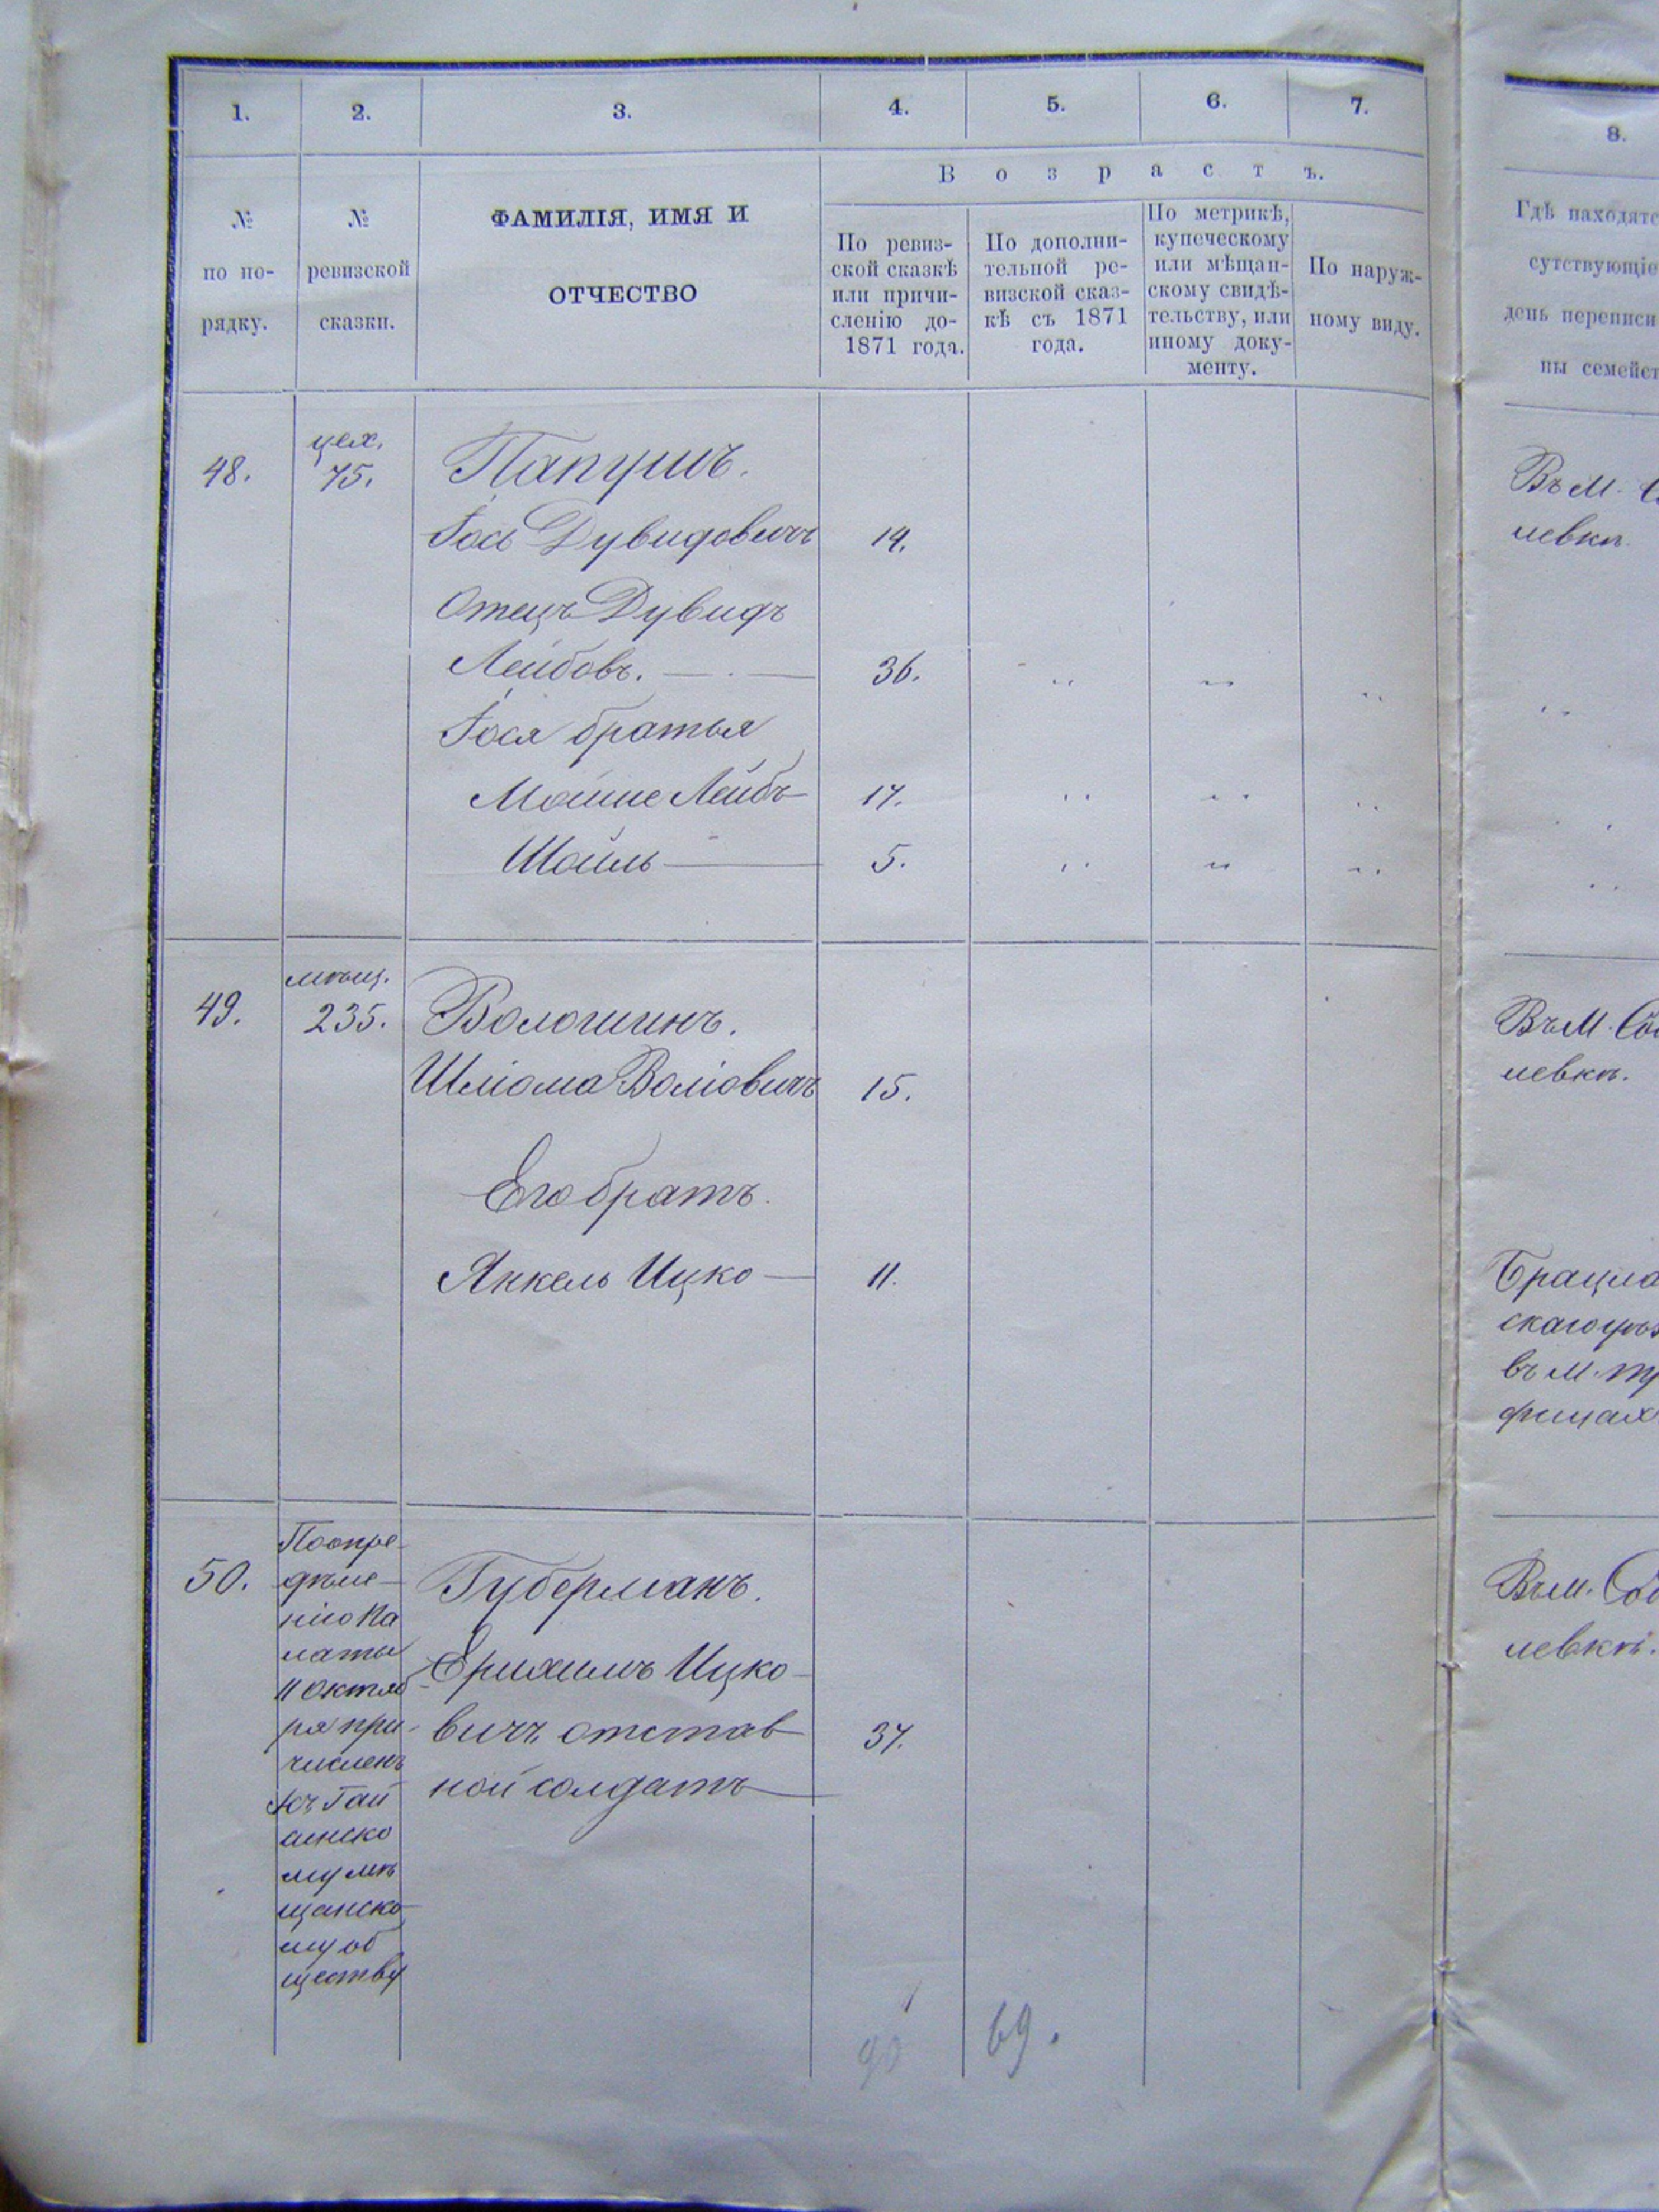 1. 2. 3. 4. 5. 6. 7.
8.
Возрастъ.
№
по по-
рядку.
№
ревизской
сказки.
ФАМИЛІЯ, ИМЯ И
ОТЧЕСТВО
По ревиз-
ской сказкѣ
или причи-
сленію до-
1871 года.
По дополни-
тельной ре-
визской сказ-
кѣ съ 1871
года.
По метрикѣ,
купеческому
или мѣщан-
скому свидѣ-
тельству, или
иному доку-
менту.
По наруж-
ному виду.
Гдѣ находятс
сутствующіе
день переписи
ны семейст
48.
цех.
75.
Папушъ.
Іось Дувидовичъ 14.
Отецъ Дувидъ
Лейбовъ. — 36. „ „ „
Іося братья
Мошие Лейбъ 17. „ „ „
Шоиль — 5. „ „ „
Въ М.
левкѣ.
49.
мѣщ.
235.
Волошинъ.
Шліома Воліовичъ 15.
Его братъ.
Янкель Ицко — 11.
Въ М. Соб
левкѣ.
Брацла
скаго уѣз
въ М.
50.
По опре-
дѣле-
нію Па
латы
11 Октяб-
ря при-
численъ
къ Гай
синско
му мѣ
щанско
му об
ществу
Губерманъ.
Ерихимъ Ицко-
вичъ отстав
ной солдатъ
37.
Въ М. Соб
левкѣ.
90
69.